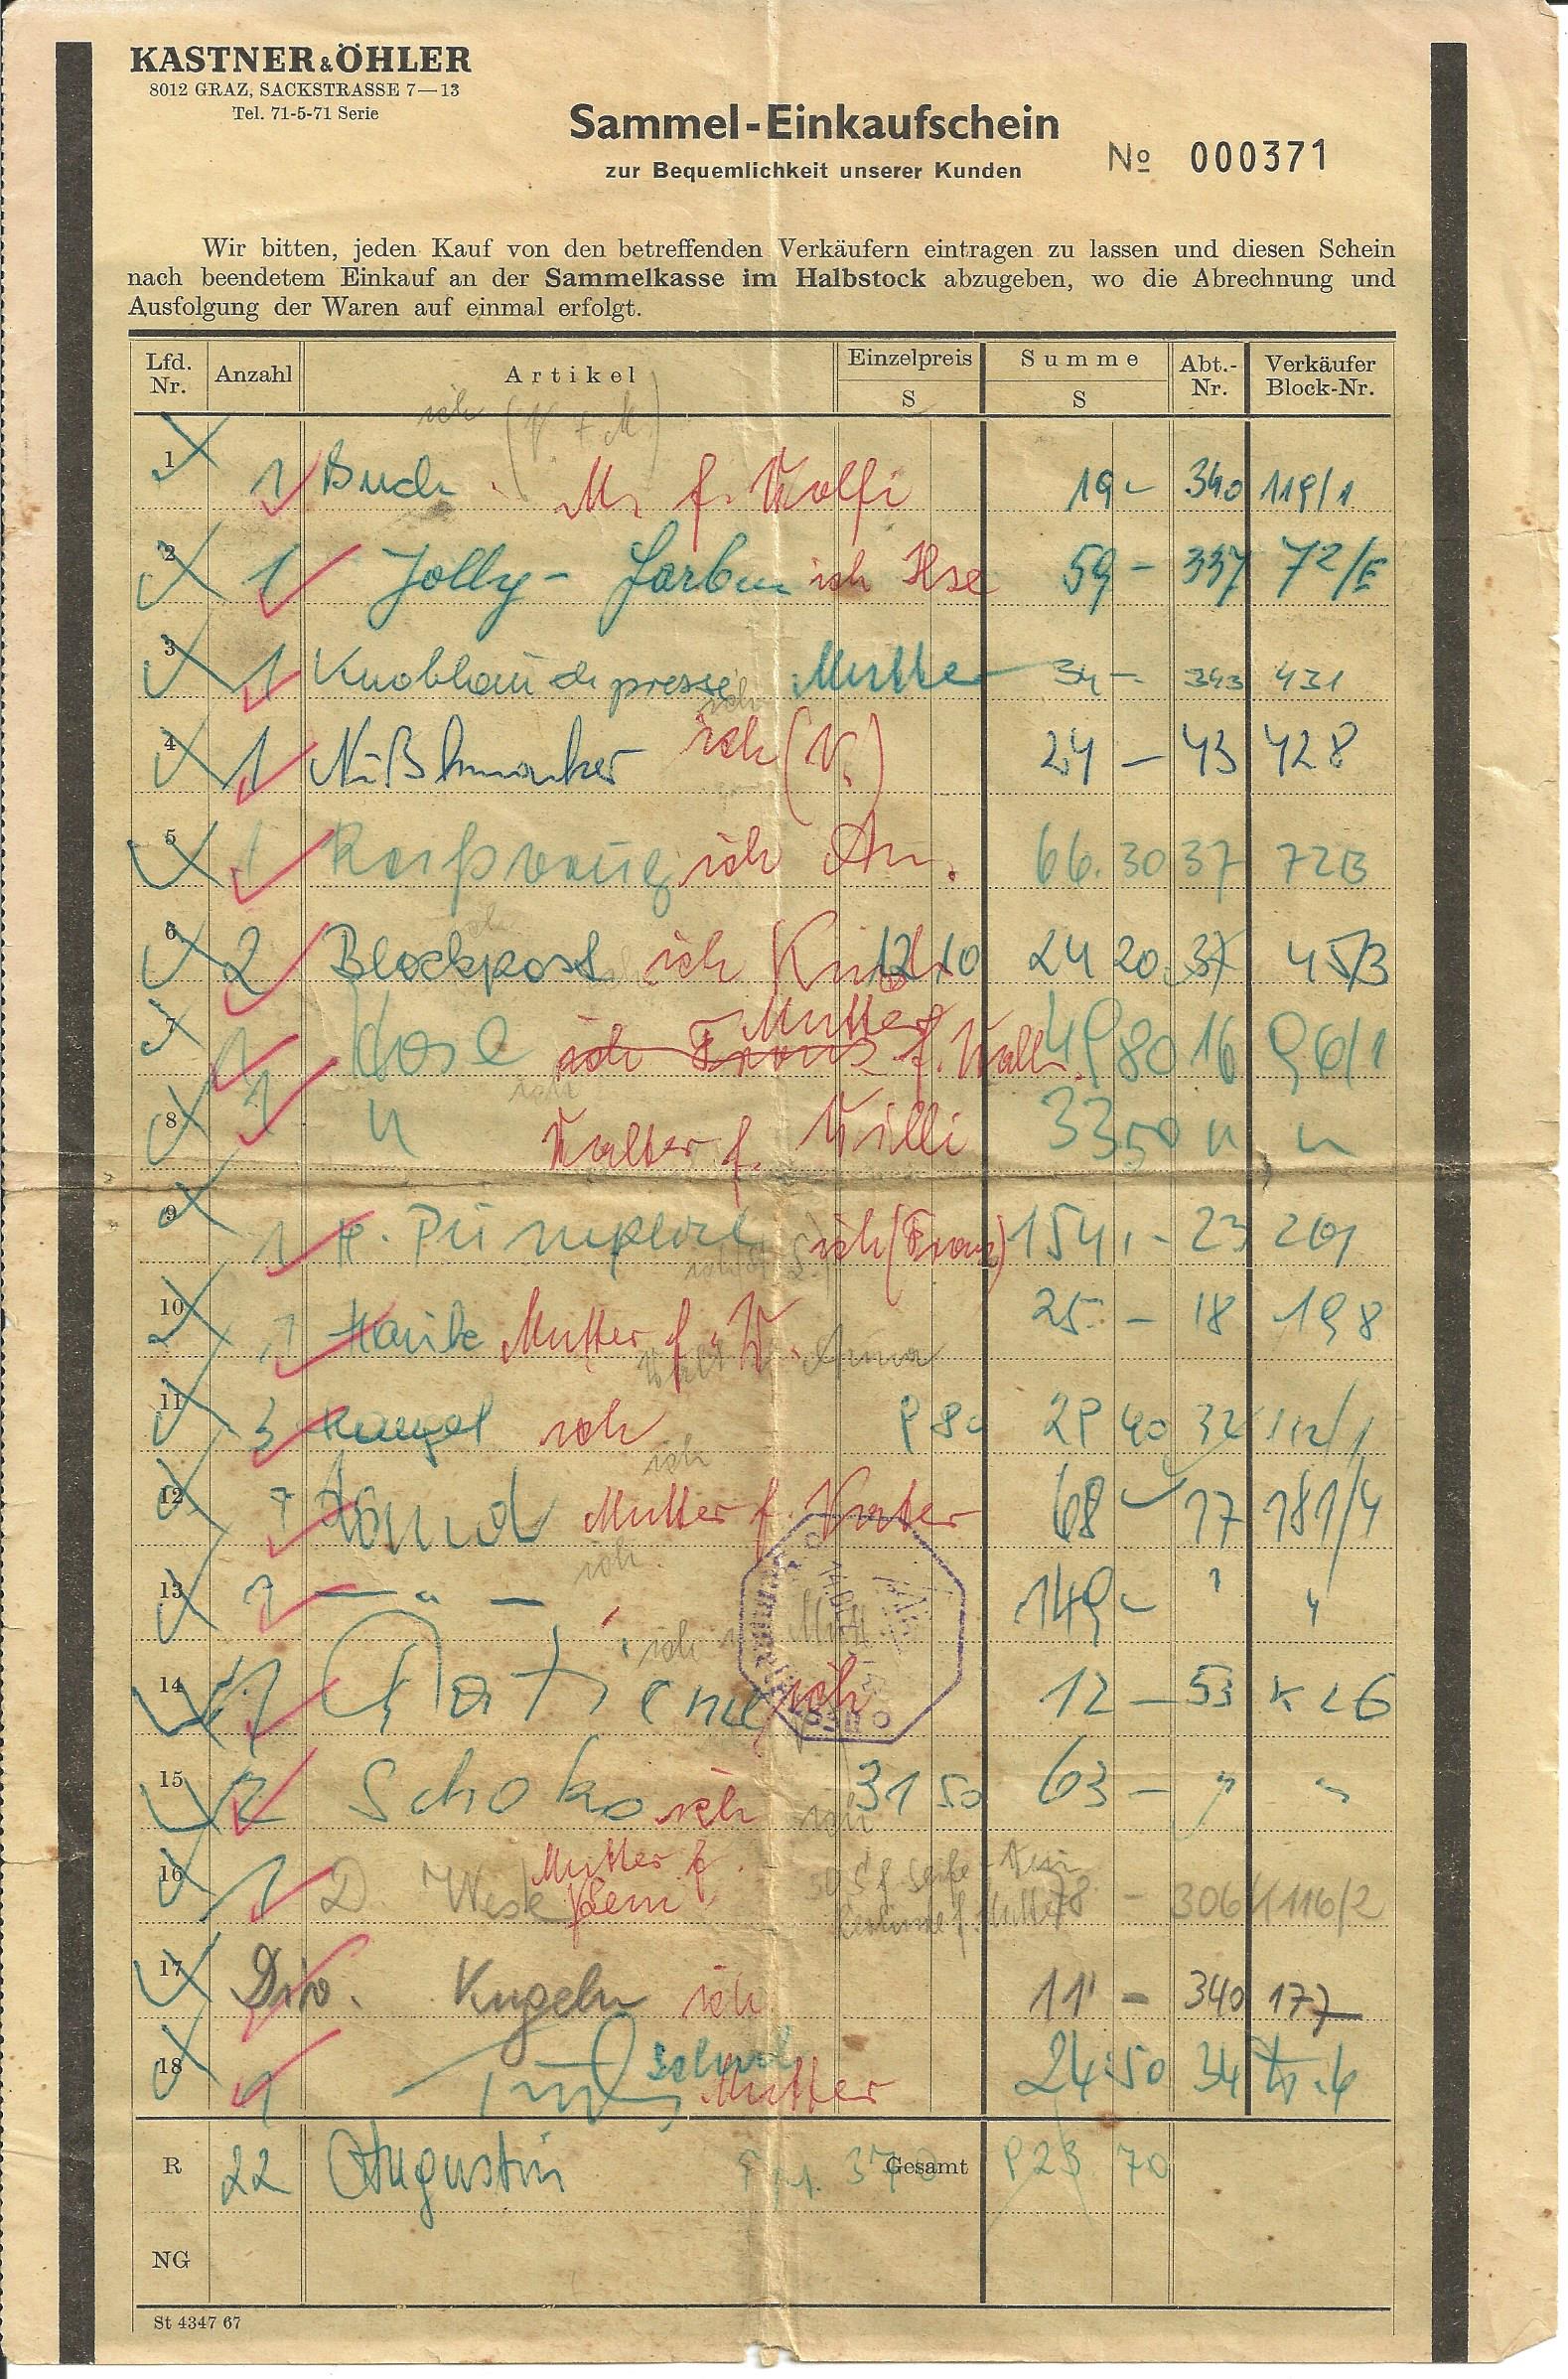 KASTNER & ÖHLER
8012 GRAZ, SACKSTRASSE 7—13
Tel. 71-5-71 Serie
Sammel-Einkaufschein
zur Bequemlichkeit unserer Kunden
No 000371
Wir bitten, jeden Kauf von den betreffenden Verkäufern eintragen zu lassen und diesen Schein
nach beendetem Einkauf an der Sammelkasse im Halbstock abzugeben, wo die Abrechnung und
Ausfolgung der Waren auf einmal erfolgt.
Lfd. Nr. Anzahl Artikel Einzelpreis S Summe S Abt.-Nr. Verkäufer Block-Nr.
ich (V + M)
1 1 Buch M. f. Wolfi 19 - 340 119/1
2 1 Jolly - Farben ich Ilse 59 - 337 72/E
3 1 Mutter 34 - 343 431
ich
4 1 ich (V.) 24 - 43 428
5 1 ich An. 66.30 37 72B
6 2 Blockpost ich 12 10 24 20 37 45/3
Mutter
7 1 Hose ich Franz f. 49 80 16 96/1
ich
8 1 " Walter f. Willi 33 50 " "
9 1 ich (Franz) 154,- 23 201
10 1 Haube Mutter f. W. 25 - 18 198
11 3 ich 9 80 29 40 32 112/1
ich
12 1 Mutter f. Vater 68 - 17 181/4
ich
13 1 — " — 149 - " "
ich
14 1 ich 12 - 53 K 26
15 2 Schoko ich 31 50 63 - " "
ich
Mutter f.
16 1 D. Weste 78 - 306 1116/2
17 Div. Kugeln ich 11 - 340 177
18 1 Mutter 24.50 34
R 22 Augustin Gesamt 923 70
NG
St 4347 67